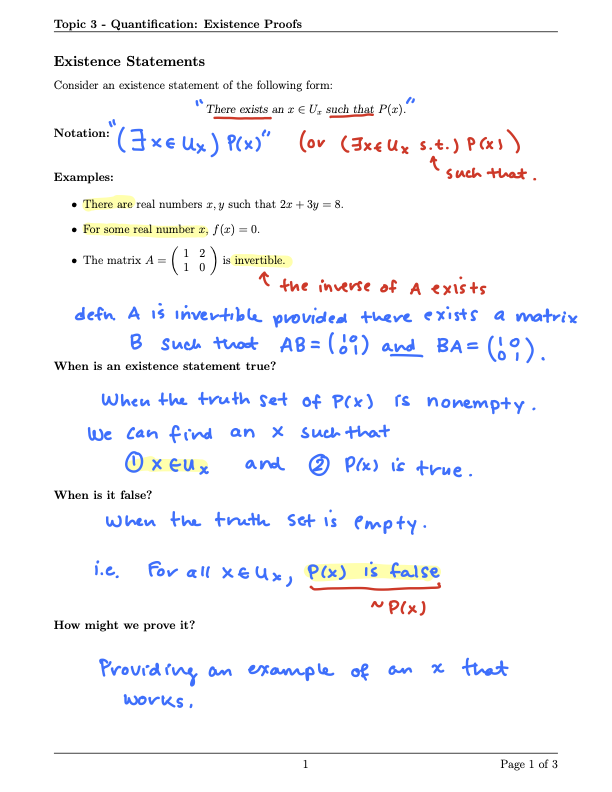 Topic 3 - Quantification: Existence Proofs
Existence Statements
Consider an existence statement of the following form:
"There exists an x ∈ Uₓ such that P(x)."
Notation: "(∃x∈Uₓ) P(x)" (or (∃x∈Uₓ s.t.) P(x))
↑ such that.
Examples:
• There are real numbers x, y such that 2x + 3y = 8.
• For some real number x, f(x) = 0.
• The matrix A = ( 1 2 ; 1 0 ) is invertible.
↑ the inverse of A exists
defn A is invertible provided there exists a matrix
B such that AB = (1 0 ; 0 1) and BA = (1 0 ; 0 1).
When is an existence statement true?
When the truth set of P(x) is nonempty.
We can find an x such that
① x∈Uₓ and ② P(x) is true.
When is it false?
When the truth set is empty.
i.e. For all x∈Uₓ, P(x) is false
~P(x)
How might we prove it?
Providing an example of an x that
works.
1 Page 1 of 3